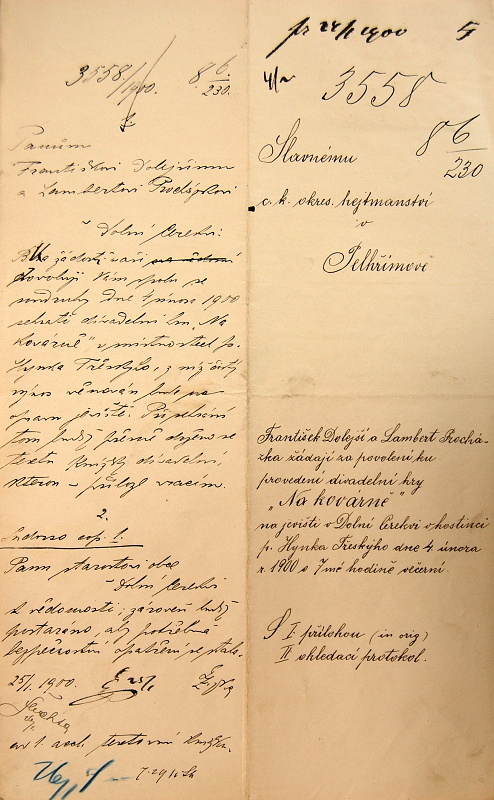 3558/1900. 8 6/230.
1.
Panům
Františkovi Dolejšímu
a Lambertovi Procházkovi
v Dolní Cerekvi.
žádosti Vaší
povoluji Vám spolu se
soudruhy dne 4 února 1900
sehráti divadelní hru „Na
kovárně" v místnostech p.
Hynka Třeského, z níž čistý
výnos věnován bude na
opravu jeviště. Při
tom budiž přesně drženo se
textu knížky divadelní,
kterou přílohou vracím.
2.
Indorso exp. 1.
Panu starostovi obce
v Dolní Cerekvi
k vědomosti; zároveň budiž
postaráno, aby potřebná
bezpečnostní opatření se stala.
25/1. 1900.
pr 24/1 1900 5
3558
8 6/230
Slavnému
c. k. okres. hejtmanství
v
Pelhřimově
František Dolejší a Lambert Prochá-
zka žádají za povolení ku
provedení divadelní hry
„Na kovárně"
na jevišti v Dolní Cerekvi v hostinci
p. Hynka Treskýho dne 4. února
r. 1900 o 7mé hodině večerní.
S I přílohou (in orig)
II ohledací protokol.